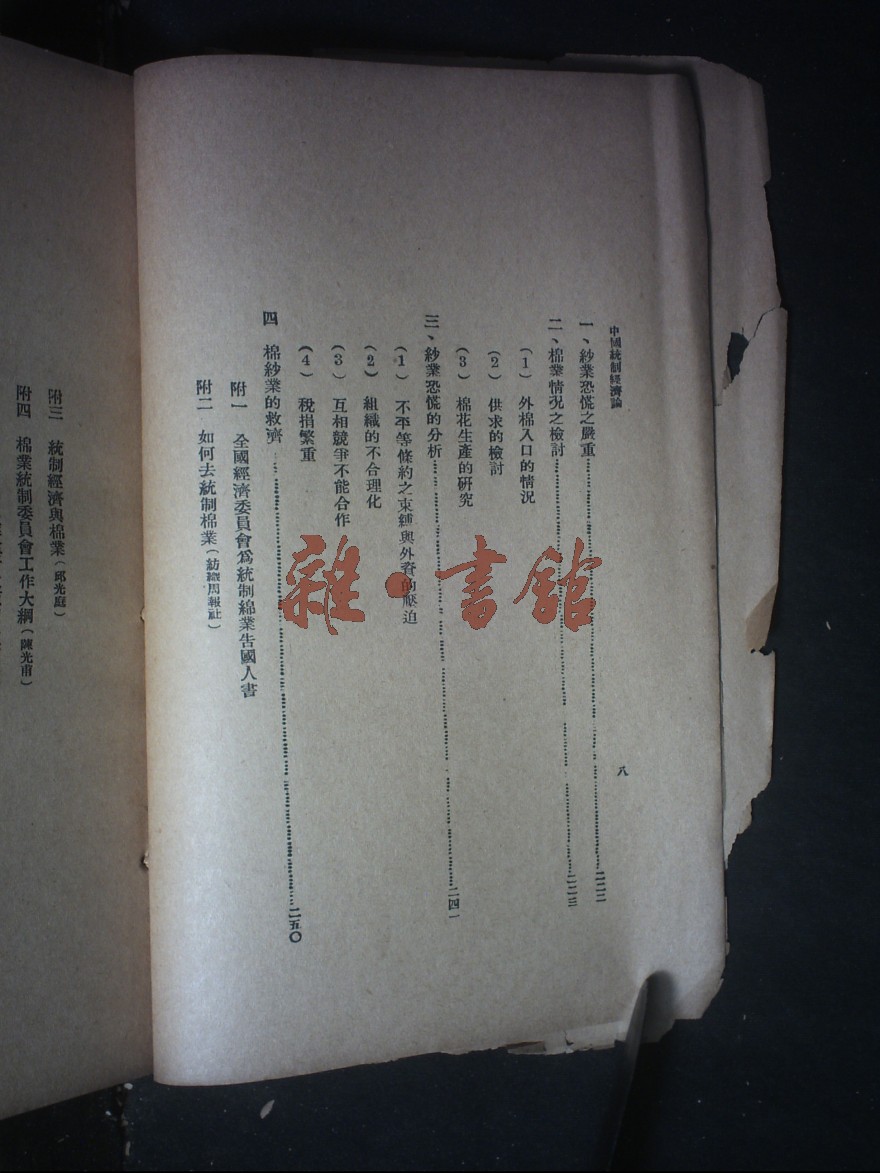 中國統制經濟論
八
一、紗業恐慌之嚴重……二二二
二、棉業情況之檢討……二二三
(1) 外棉入口的情況
(2) 供求的檢討
(3) 棉花生產的硏究
三、紗業恐慌的分析……二四一
(1) 不平等條約之束縛與外資的壓迫
(2) 組織的不合理化
(3) 互相競爭不能合作
(4) 稅捐繁重
四 棉紗業的救濟……二五〇
附一 全國經濟委員會爲統制綿業告國人書
附二 如何去統制棉業(紡織周報社)
附三 統制經濟與棉業(邱光庭)
附四 棉業統制委員會工作大綱(陳光甫)
雜·書館